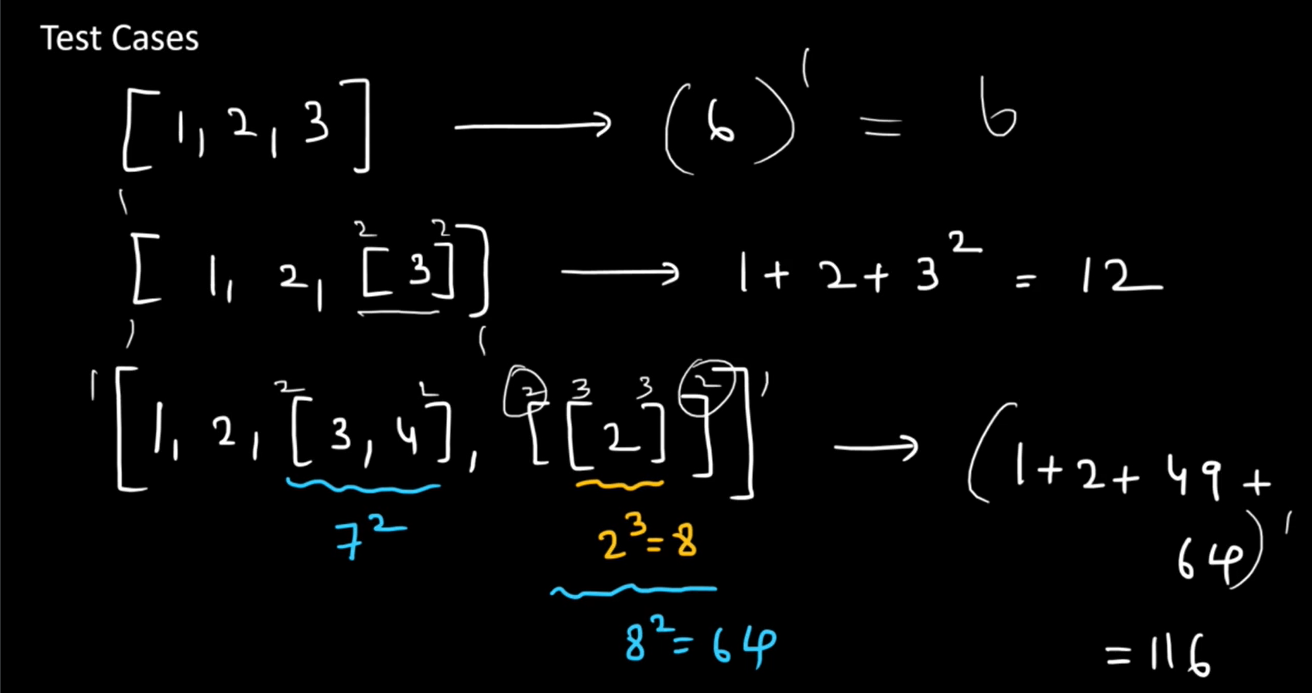 Test Cases
[1, 2, 3] ⟶ (6)¹ = 6
¹[ 1, 2, ²[3]² ]¹ ⟶ 1 + 2 + 3² = 12
¹[1, 2, ²[3, 4]², ²[³[2]³]²]¹ ⟶ (1 + 2 + 49 +
64)¹
7²
2³ = 8
8² = 64
= 116